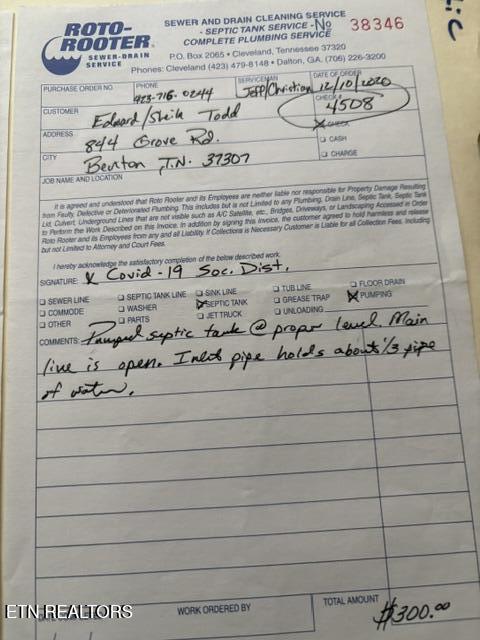 ROTO-
ROOTER®
SEWER-DRAIN
SERVICE
SEWER AND DRAIN CLEANING SERVICE
- SEPTIC TANK SERVICE -
COMPLETE PLUMBING SERVICE
No 38346
P.O. Box 2065 • Cleveland, Tennessee 37320
Phones: Cleveland (423) 479-8148 • Dalton, GA. (706) 226-3200
PURCHASE ORDER NO.
PHONE
423-716-0244
SERVICEMAN
Jeff/Christian
DATE OF ORDER
12/10/2020
CUSTOMER
Edward/Sheila Todd
CHECK #
4508
CHECK
ADDRESS
844 Grove Rd.
CASH
CITY
Benton, T.N. 37307
CHARGE
JOB NAME AND LOCATION
It is agreed and understood that Roto Rooter and its Employees are neither liable nor responsible for Property Damage Resulting
from Faulty, Defective or Deteriorated Plumbing. This includes but is not Limited to any Plumbing, Drain Line, Septic Tank, Septic Tank
Lid, Culvert, Underground Lines that are not visible such as A/C Satellite, etc., Bridges, Driveways, or Landscaping Accessed in Order
to Perform the Work Described on this Invoice. In addition by signing this Invoice, the customer agreed to hold harmless and release
Roto Rooter and its Employees from any and all Liability. If Collections is Necessary Customer is Liable for all Collection Fees, Including
but not Limited to Attorney and Court Fees.
I hereby acknowledge the satisfactory completion of the below described work.
SIGNATURE: X Covid-19 Soc. Dist.
SEWER LINE SEPTIC TANK LINE SINK LINE TUB LINE FLOOR DRAIN
COMMODE WASHER SEPTIC TANK GREASE TRAP PUMPING
OTHER PARTS JET TRUCK UNLOADING
COMMENTS: Pumped septic tank @ proper level. Main
line is open. Inlet pipe holds about 1/3 pipe
of water.
WORK ORDERED BY
TOTAL AMOUNT
$300.00
ETN REALTORS